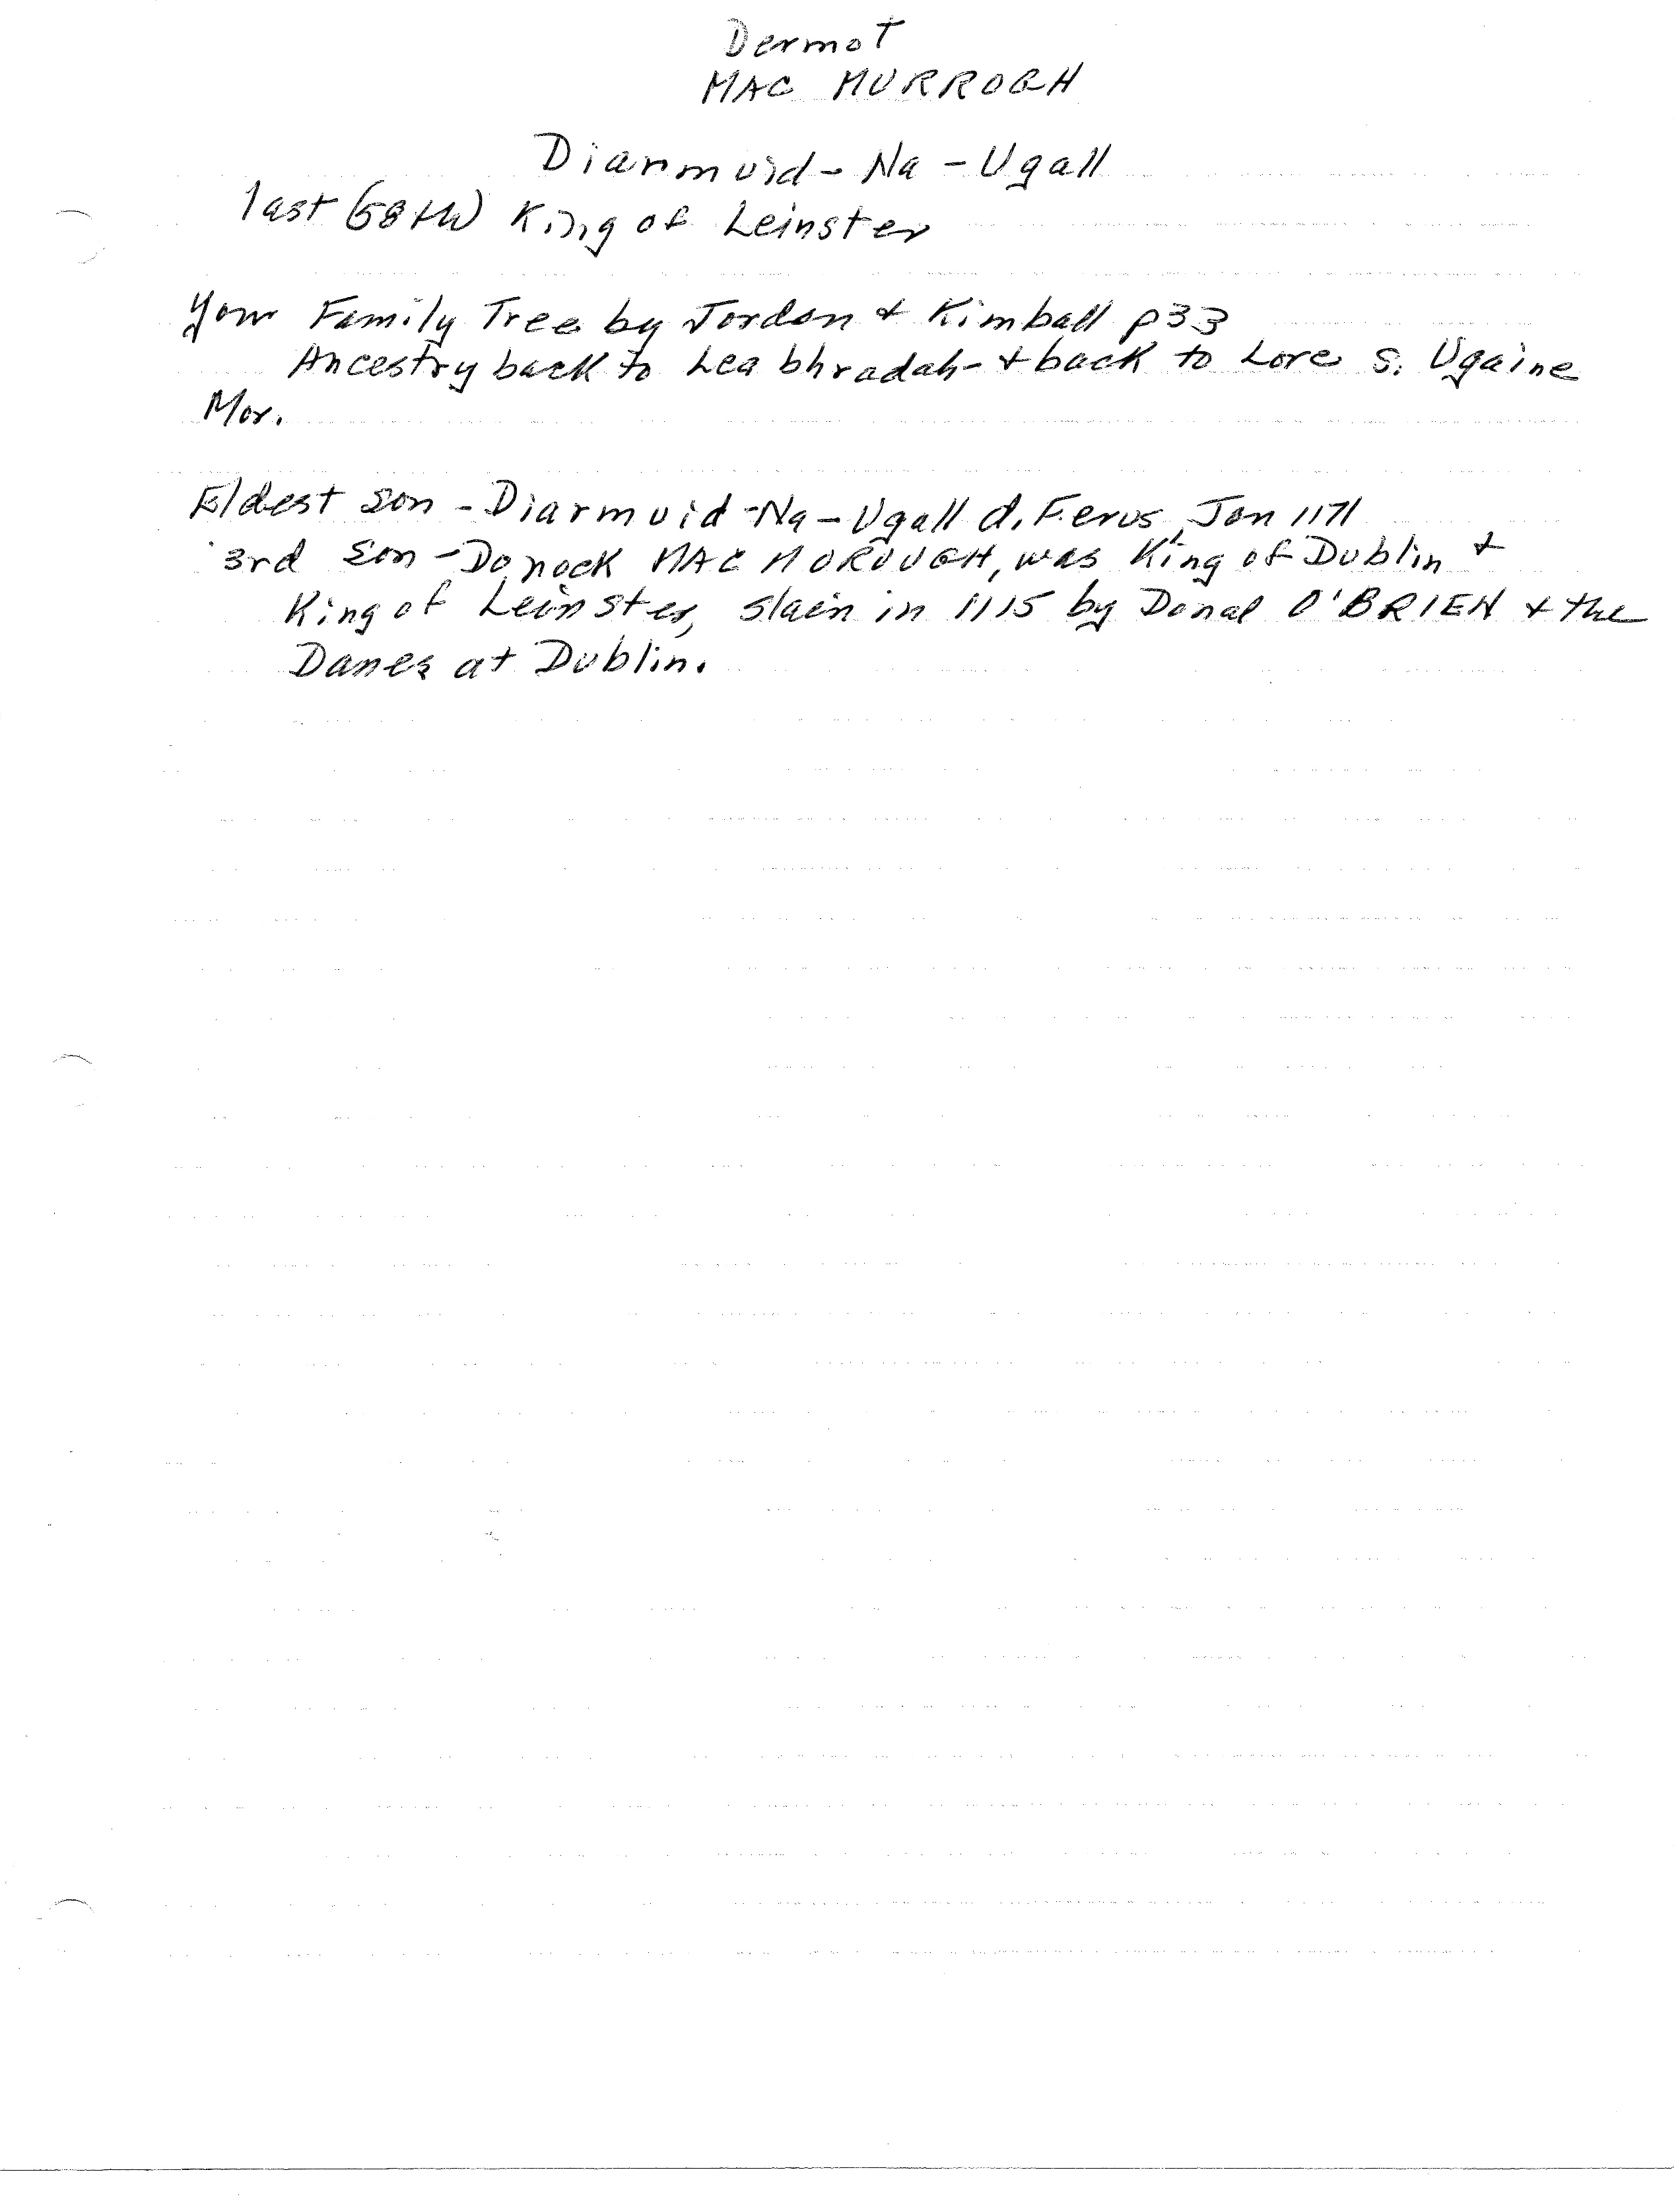 Dermot
MAC MURROGH
Diarmuid - Na - Ugall
last (58th) King of Leinster
Your Family Tree by Jordan + Kimball p33
Ancestry back to Lea bhradah - + back to Lore s. Ugaine
Mor.
Eldest son - Diarmuid - Na - Ugall d. Ferus, Jan 1171
3rd son - Donock MAC MOROUGH, was King of Dublin +
King of Leinster, slain in 1115 by Donal O'BRIEN + the
Danes at Dublin.